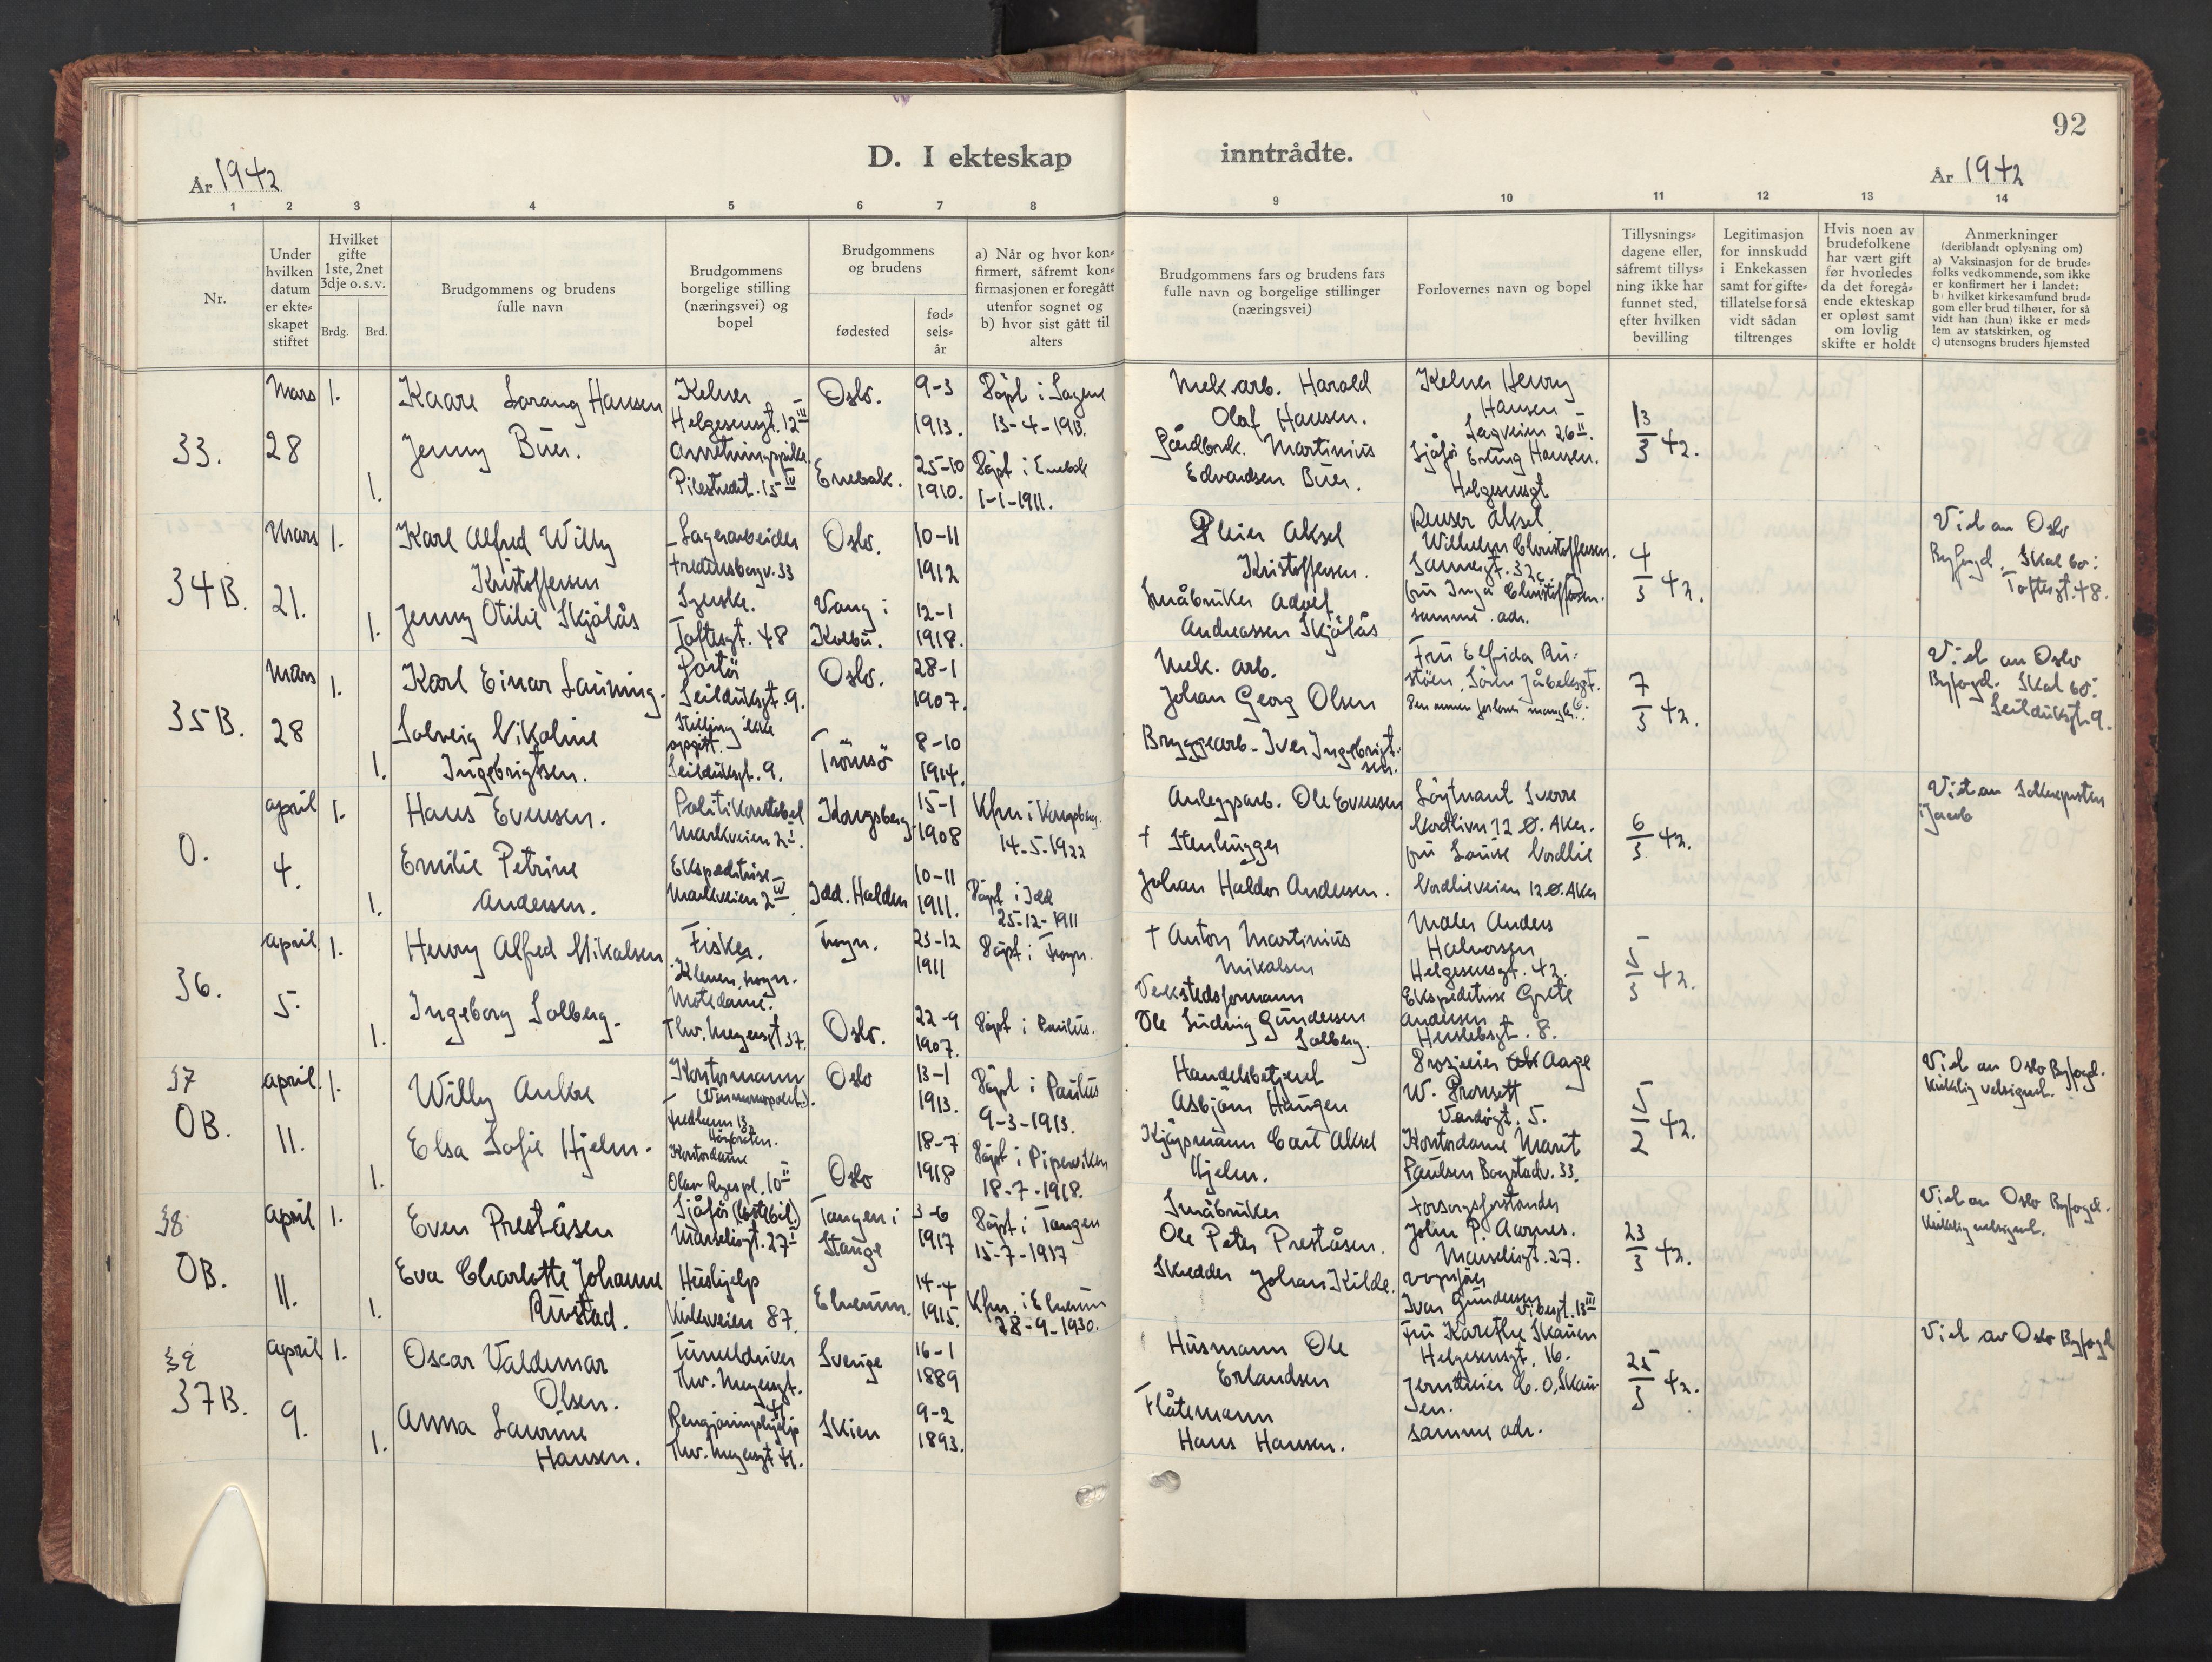 92
D. I ekteskap
inntrådte.
År 1942
År 1942
1 2 3 4 5 6 7 8
9 10 11 12 13 14
Nr.
Under
hvilken
datum
er ekte-
skapet
stiftet
Hvilket
gifte
1ste, 2net
3dje o. s. v.
Brdg. Brd.
Brudgommens og brudens
fulle navn
Brudgommens
borgelige stilling
(næringsvei) og
bopel
Brudgommens
og brudens
fødested
fød-
sels-
år
a) Når og hvor kon-
firmert, såfremt kon-
firmasjonen er foregått
utenfor sognet og
b) hvor sist gått til
alters
Brudgommens fars og brudens fars
fulle navn og borgelige stillinger
(næringsvei)
Forlovernes navn og bopel
Tillysnings-
dagene eller,
såfremt tillys-
ning ikke har
funnet sted,
efter hvilken
bevilling
Legitimasjon
for innskudd
i Enkekassen
samt for gifte-
tillatelse for så
vidt sådan
tiltrenges
Hvis noen av
brudefolkene
har vært gift
før hvorledes
da det foregå-
ende ekteskap
er opløst samt
om lovlig
skifte er holdt
Anmerkninger
(deriblandt oplysning om)
a) Vaksinasjon for de brude-
folks vedkommende, som ikke
er konfirmert her i landet:
b) hvilket kirkesamfund brud-
gom eller brud tilhører, for så
vidt han (hun) ikke er med-
lem av statskirken, og
c) utensogns bruders hjemsted
33.
Mars
28
1.
1.
Kaare Sorang Hansen
Jenny Buer.
Kelner
Helgesensgt. 12 III
Pilestredet. 15 IV
Oslo.
Enebak.
9-3
1913.
25-10
1910.
Döpt i Sagene
13-4-1913.
Döpt i Enebak
1-1-1911.
Mek. arb. Harald
Olaf Hansen.
Gårdbruk. Martinius
Edvardsen Buer.
Kelner Henry
Hansen
26 II.
Sjåfør Erling Hansen.
Helgesensgt
13/3 42.
34B.
Mars
21.
1.
1.
Karl Alfred Willy
Kristoffersen
Jenny Otilie Skjölås
Lagerarbeider
Fredensborgv. 33
Syerske.
Toftesgt. 48
Oslo.
Vang i
Kolbu.
10-11
1912
12-1
1918.
Pleier Aksel
Kristoffersen.
Småbruker Adolf
Andreassen Skjölås
Renser Aksel
Wilhelm Christoffersen.
Sannergt. 32c
fru Inga Christoffersen.
samme adr.
4/3 42.
Viet av Oslo
Byfogd. Skal bo:
Toftesgt. 48.
35B.
Mars
28
1.
1.
Karl Einar Launing.
Solveig Nikoline
Ingebrigtsen.
Portör
Seilduksgt. 9.
Stilling ikke
opgitt.
Seilduksgt. 9.
Oslo.
Tromsö
28-1
1907.
8-10
1914.
Mek. arb.
Johan Georg Olsen
Bryggearb. Iver Ingebrigt-
sen.
Fru Elfrida Ru-
støen, Sören Jåbeksgt.
Den annen forlover mangler.
7/3 42.
Viet av Oslo
Byfogd. Skal bo:
Seilduksgt. 9.
0.
april
4.
1.
1.
Hans Evensen.
Emilie Petrine
Andersen.
Politikonstabel
Markveien 2 I.
Ekspeditrise
Markveien 2 IV.
Kongsberg
Idd. Halden
15-1
1908
10-11
1911.
Kfm i Kongsberg.
14-5-1922
Döpt i Idd
25-12-1911
Anleggsarb. Ole Evensen
† Stenhugger
Johan Haldor Andersen.
Löytnant Sverre
Nordlivn 12 Ø. Aker.
fru Louise Nordlie
Nordlieveien 12 Ø. Aker
6/3 42.
Viet av Sokneprsten
i Jacob
36.
april
5.
1.
1.
Henry Alfred Mikalsen
Ingeborg Solberg.
Fisker.
Motedame.
Thv. Meyersgt 37.
Frogn.
Oslo.
23-12
1911
22-9
1907.
Döpt i Frogn.
Döpt i Paulus.
† Anton Martinius
Mikalsen
Verkstedsformann
Ole Ludvig Gundersen
Solberg.
Maler Anders
Halvorsen
Helgesensgt. 42.
Ekspeditrise Grete
Andersen
Herslebsgt. 8.
5/3 42.
37
OB.
april
11.
1.
1.
Willy Anker
Elsa Sofie Hjelm.
Kontormann
(Vinmonopolet).
Fredheim 13,
Höybråten.
Kontordame
Olav Ryes pl. 10 II
Oslo
Oslo
13-1
1913.
18-7
1918
Döpt i Paulus
9-3-1913.
Döpt i Piperviken
18-7-1918.
Handelsbetjent
Asbjörn Haugen
Kjøpmann Carl Aksel
Hjelm.
Aage
W. Pronsett
Vardögt. 5.
Kontordame Marit
Paulsen Bogstadv. 33.
5/2 42.
Viet av Oslo Byfogd.
Kirkelig velsignet.
38
OB.
april
11.
1.
1.
Even Preståsen
Eva Charlotte Johanne
Rustad.
Sjåfør (lastebil.)
Marselisgt. 27 I
Hushjelp
Kirkeveien 87.
Tangen i
Stange
Elverum.
3-6
1917
14-4
1915.
Döpt i Tangen
15-7-1917
Kfm. i Elverum
28-9-1930.
Småbruker
Ole Peter Preståsen.
Skredder Johan Kilde.
Forsorgsforstander
John P. Aarnes.
Marseligt. 27.
Ivar Gundersen
Vibesgt. 13 III
23/3 42.
Viet av Oslo Byfogd.
Kirkelig velsignet.
39
37B.
april
9.
1.
1.
Oscar Valdemar
Olsen.
Anna Laurine
Hansen.
Tunneldriver
Thv. Meyersgt.
41
Rengjöringshjelp
Thv. Meyersgt 41.
Sverige
Skien
16-1
1889
9-2
1893.
Husmann Ole
Erlandsen
Flåtemann
Hans Hansen.
Fru Karethe Skauen
Helgesensgt. 16.
Jerndreier C. O. Skau-
en.
samme adr.
25/3 42.
Viet av Oslo Byfogd